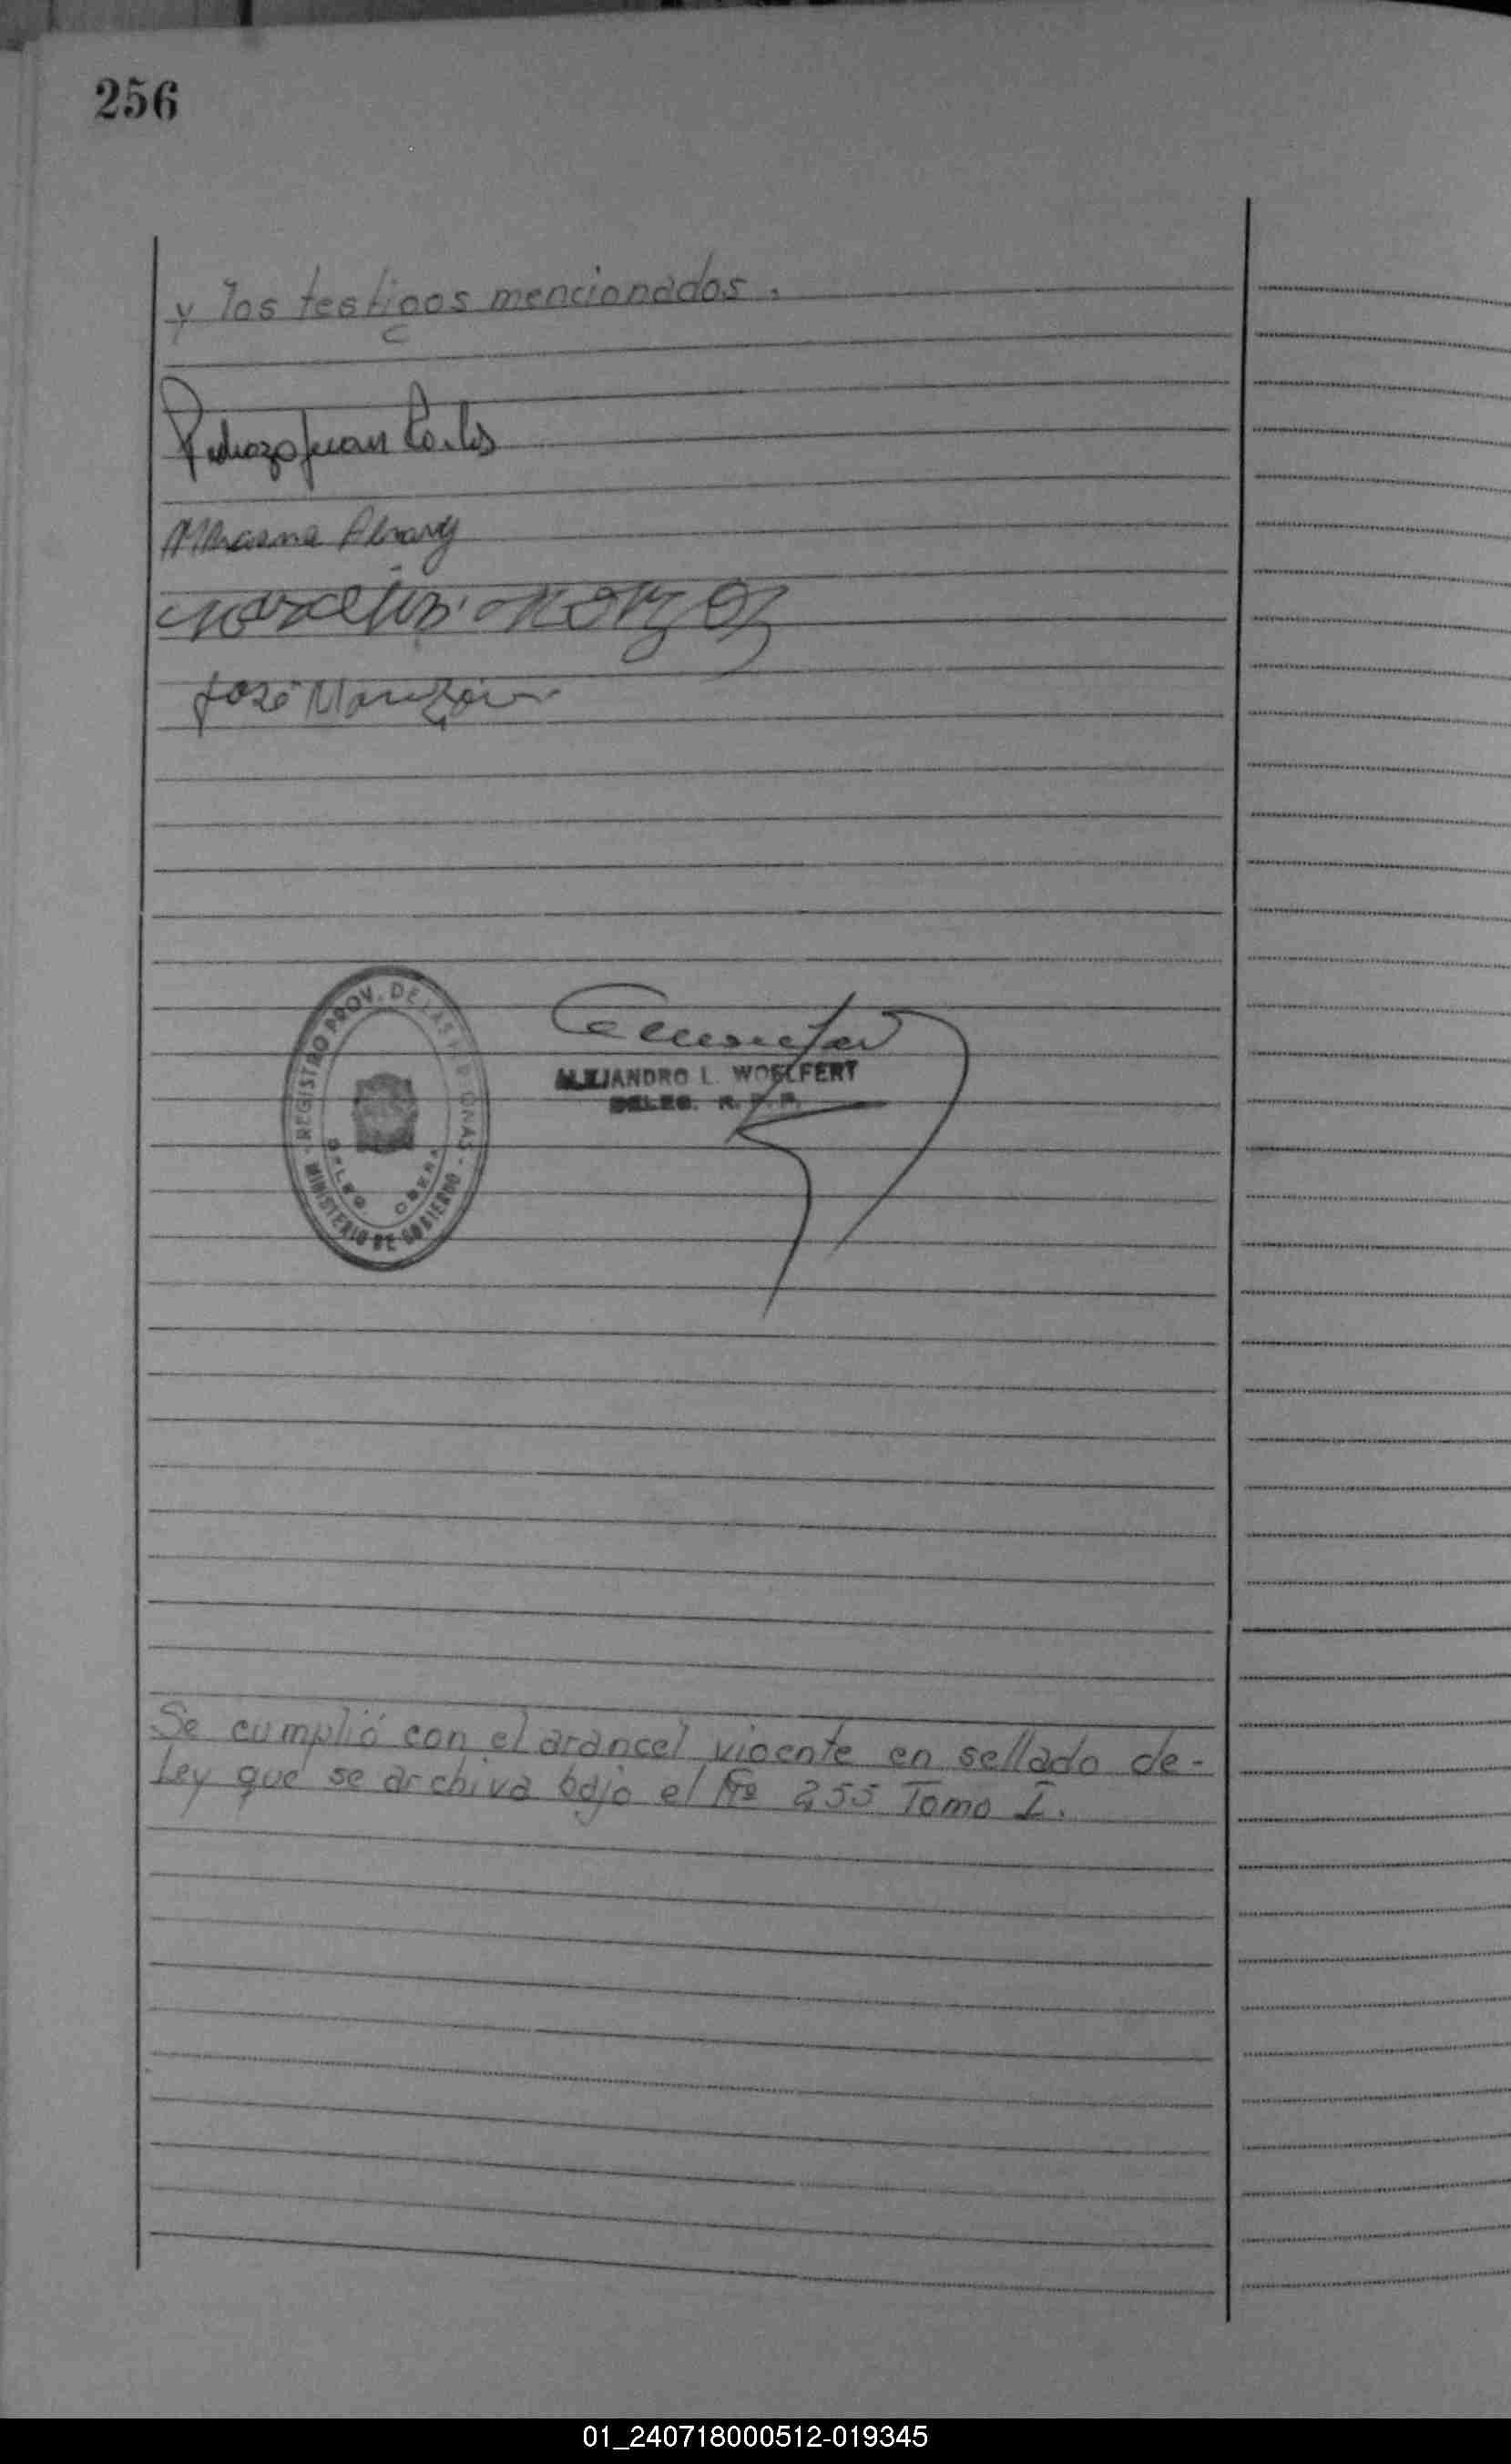 256
y los testigos mencionados.
Pedrozo Juan Carlos
José
REGISTRO PROV. DE LAS PERSONAS -
MINISTERIO DE GOBIERNO -
DELEG. OBERA
ALEJANDRO L. WOELFERT
DELEG. R. P. P.
Se cumplió con el arancel vigente en sellado de-
Ley que se archiva bajo el Nº 255 Tomo I.
01_240718000512-019345